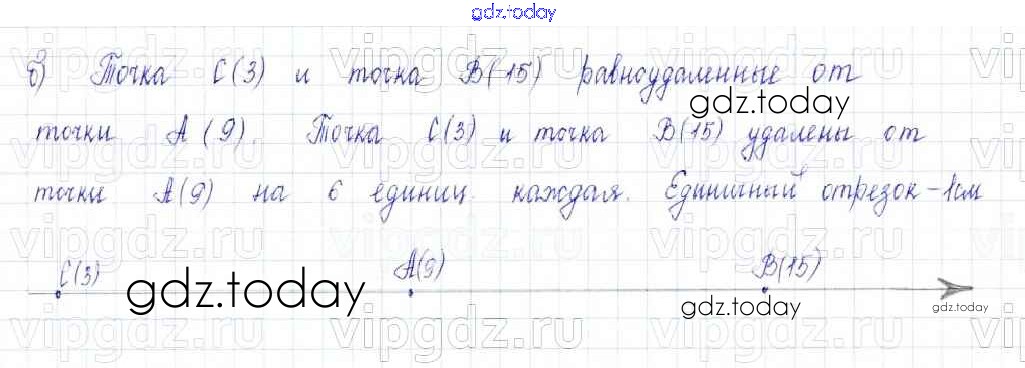 gdz.today
б) Точка С(3) и точка В(15) равноудаленные от
gdz.today
точки А(9). Точка С(3) и точка В(15) удалены от
точки А(9) на 6 единиц каждая. Единичный отрезок – 1см
С(3) А(9) В(15)
gdz.today gdz.today gdz.today
vipgdz.ru vipgdz.ru vipgdz.ru